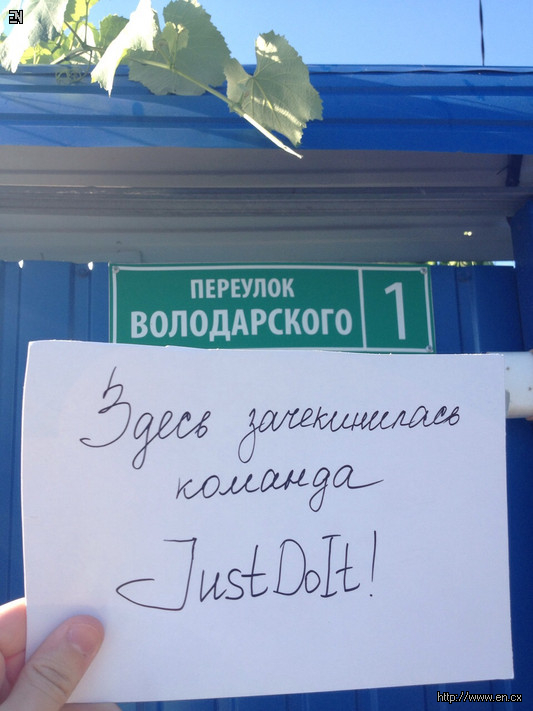 EN
ПЕРЕУЛОК
ВОЛОДАРСКОГО
1
Здесь зачекинилась
команда
JustDoIt!
http://www.en.cx